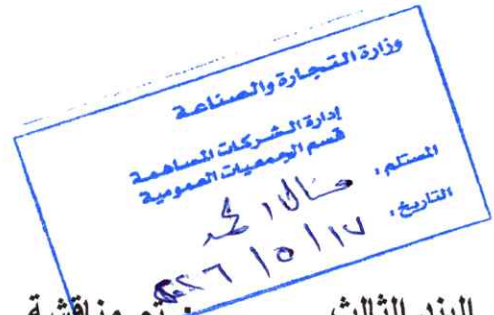 وزارة التجارة والصناعة
إدارة الشركات المساهمة
قسم الجمعيات العمومية
المستلم :
التاريخ : ١٧ / ٥ / ٢٠٢٦
البند الثالث : تم مناقشة